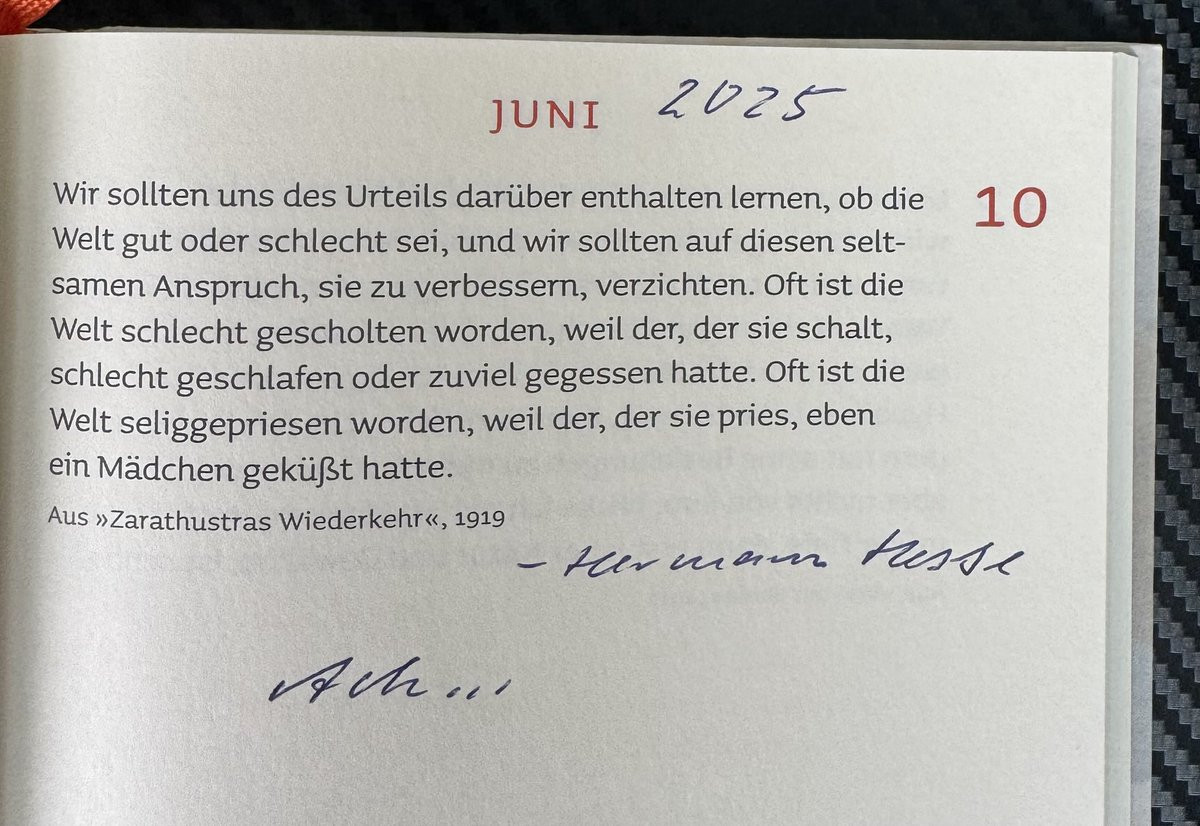 JUNI 2025
Wir sollten uns des Urteils darüber enthalten lernen, ob die 10
Welt gut oder schlecht sei, und wir sollten auf diesen selt-
samen Anspruch, sie zu verbessern, verzichten. Oft ist die
Welt schlecht gescholten worden, weil der, der sie schalt,
schlecht geschlafen oder zuviel gegessen hatte. Oft ist die
Welt seliggepriesen worden, weil der, der sie pries, eben
ein Mädchen geküßt hatte.
Aus »Zarathustras Wiederkehr«, 1919
- Hermann Hesse
Ach...